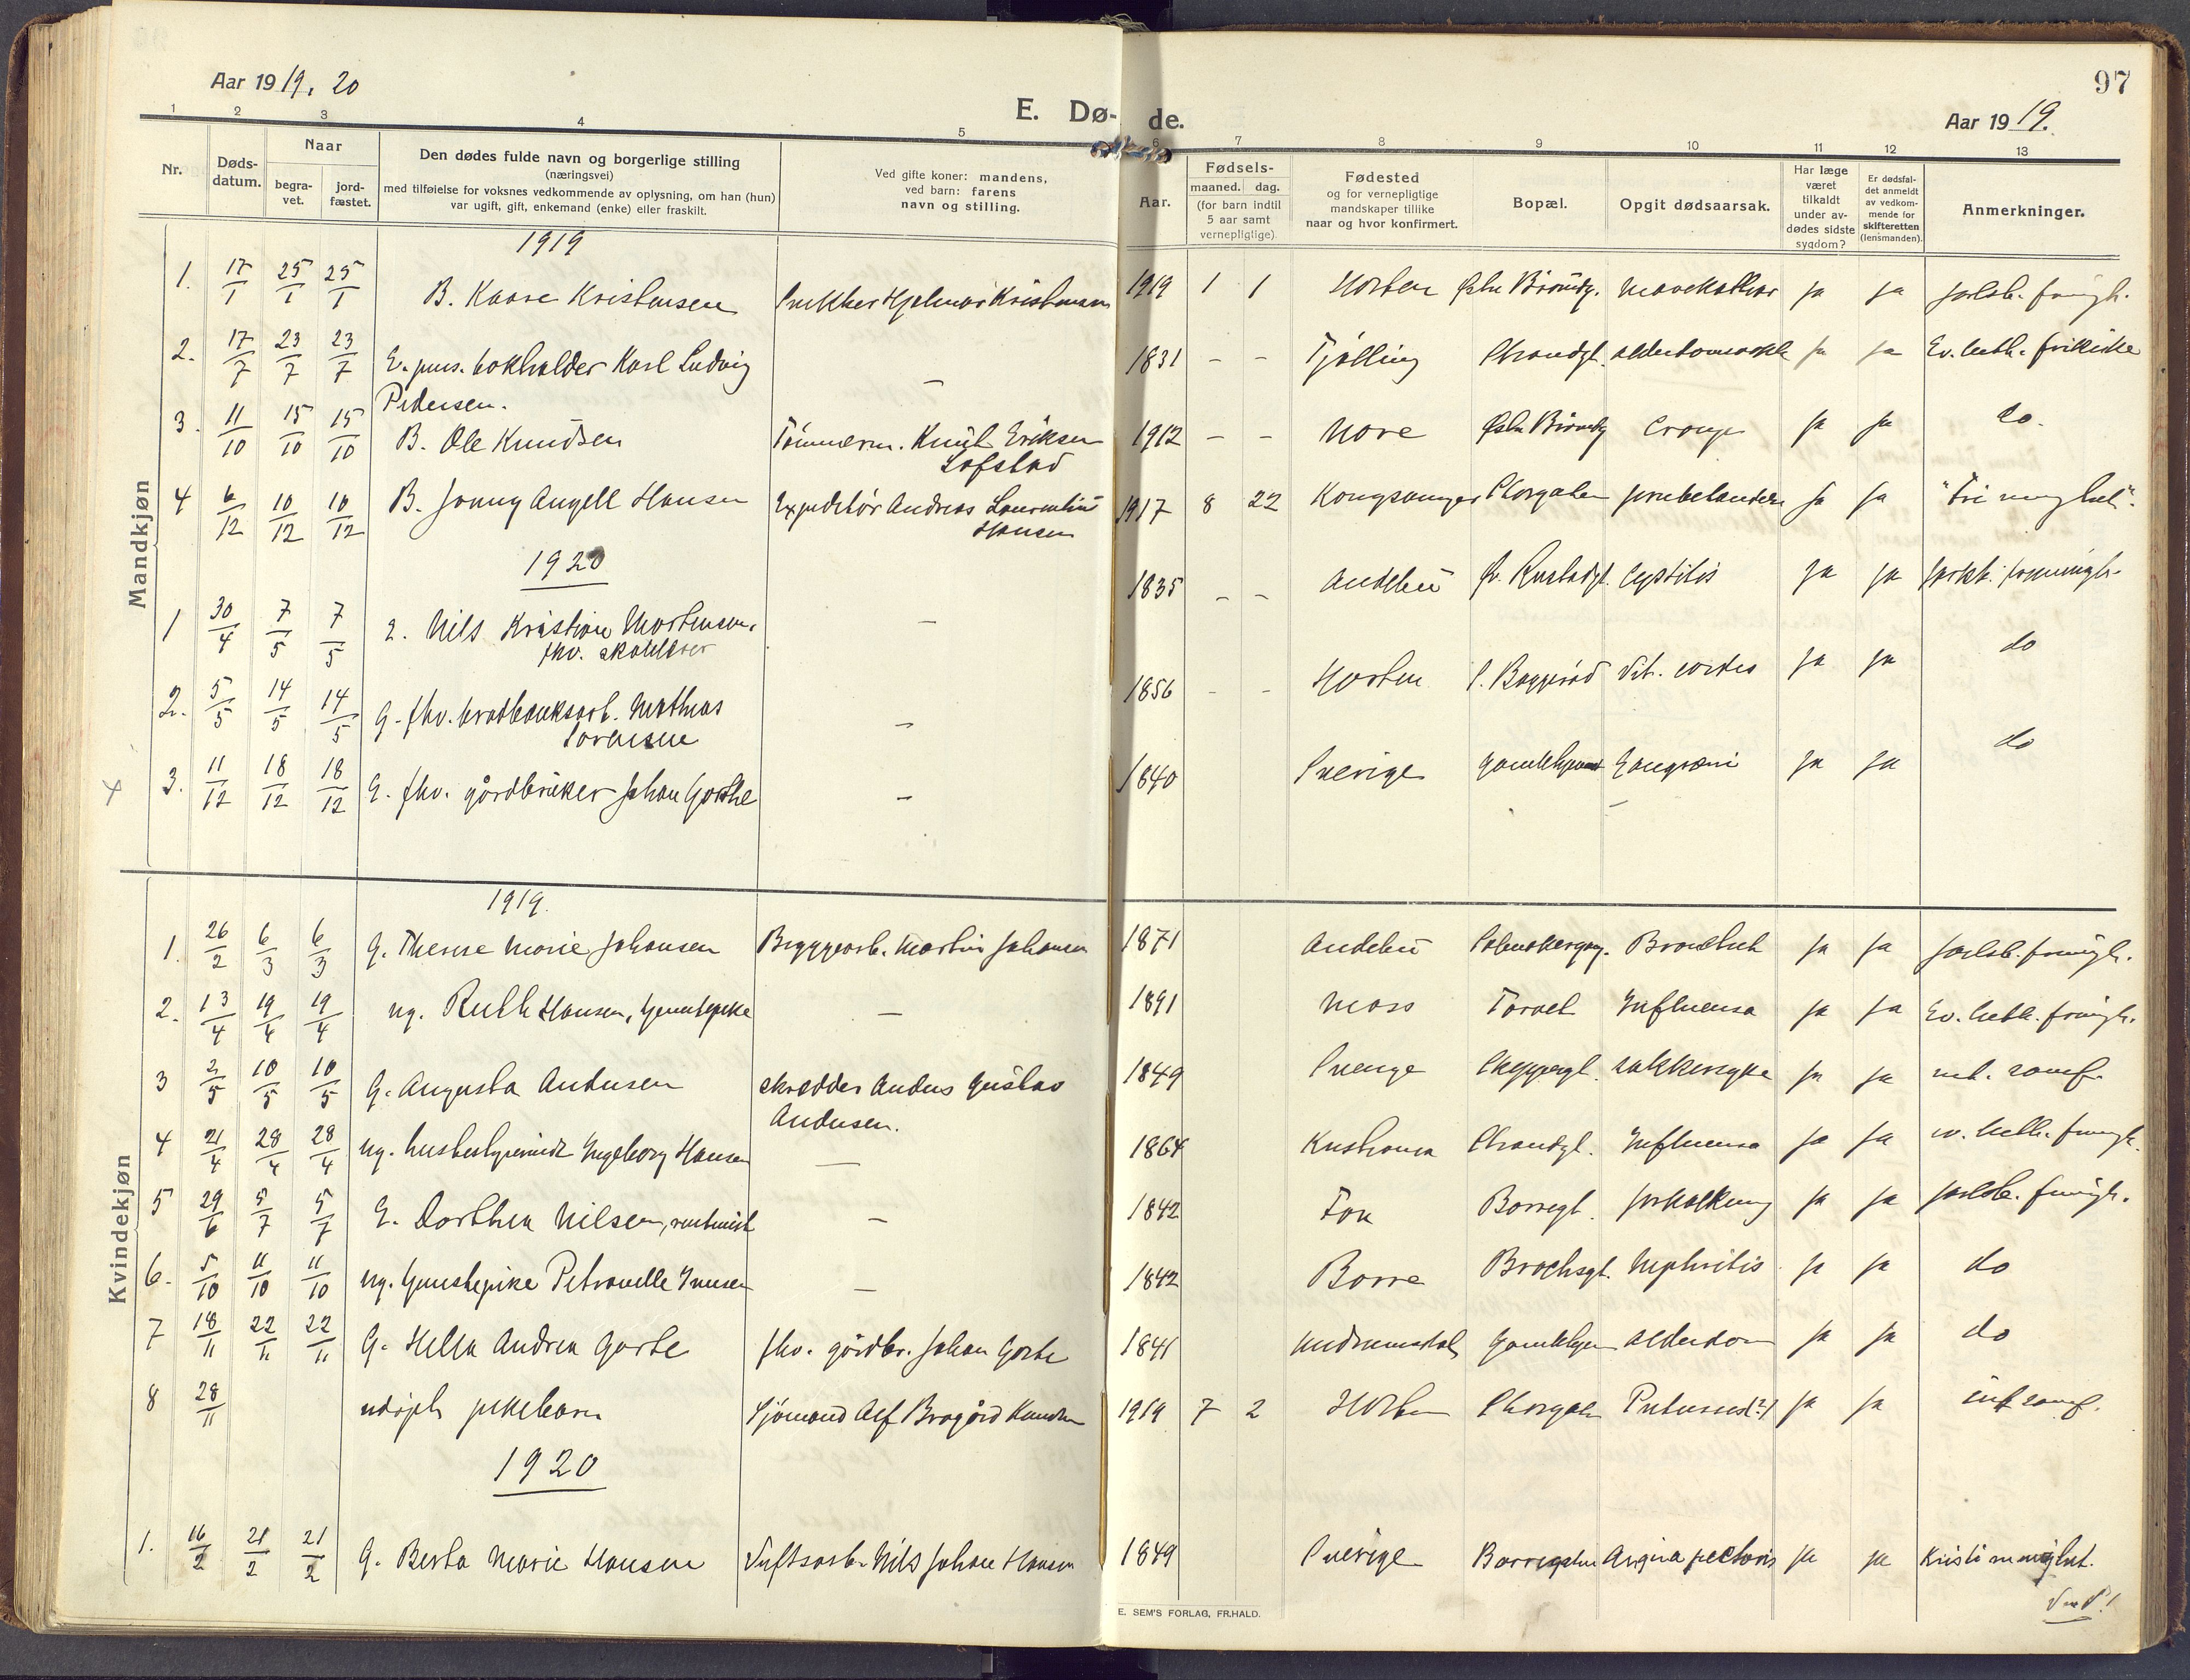 Aar 1919. 20
E. Dø-
de.
97
Aar 1919.
1 2 3 4 5 6 7 8 9 10 11 12 13
Nr.
Døds-
datum.
Naar
begra-
vet.
jord-
fæstet.
Den dødes fulde navn og borgerlige stilling
(næringsvei)
med tilføielse for voksnes vedkommende av oplysning, om han (hun)
var ugift, gift, enkemand (enke) eller fraskilt.
Ved gifte koner: mandens,
ved barn: farens
navn og stilling.
Aar.
Fødsels-
maaned. dag.
(for barn indtil
5 aar samt
vernepligtige).
Fødested
og for vernepligtige
mandskaper tillike
naar og hvor konfirmert.
Bopæl.
Opgit dødsaarsak.
Har læge
været
tilkaldt
under av-
dødes sidste
sygdom?
Er dødsfal-
det anmeldt
av vedkom-
mende for
skifteretten
(lensmanden).
Anmerkninger.
Mandkjøn
1919
1. 17/1 25/1 25/1 B. Kaare Kristensen Snekker Hjalmar Kristensen 1919 1 1 Horten Østre Bromsg. Mavekatar ja ja Jarlsb. frimgh.
2. 17/7 23/7 23/7 E. pens. bokholder Karl Ludvig – 1831 – – Tjølling Strandgt. ja ja Ev. luth. frikirke
Pedersen.
3. 11/10 15/10 15/10 B. Ole Knudsen Tømmerm. Knut Eriksen 1912 – – Nore ja ja do.
Lofstad
4 6/12 10/12 10/12 B. Jonny Angell Hansen Expeditør Andreas Laurentius 1917 8 22 Kongsvinger Storgaten ja ja "Fri menighet".
Hansen
1920
1 30/4 7/5 7/5 Nils Kristian Mortensen, – 1835 – – Andebu Cystitis ja ja
fhv. skolelærer
2. 5/5 14/5 14/5 G. fhv. Mathias – 1856 – – Horten Vit. cordis ja ja do
Sørensen
3. 11/12 18/12 18/12 fhv. gårdbruker Johan Gorthe – 1840 Sverige Gangræn ja ja do
Kvindekjøn
1919.
1. 26/2 6/3 6/3 G. Therese Marie Johansen Bryggearb. Martin Johansen 1871 Andebu ja ja Jarlsb. frimgh.
2. 13/4 19/4 19/4 ug. Ruth Hansen, tjenestepike – 1891 Moss Torvet Influensa ja ja Ev. luth. frimgh.
3 2/5 10/5 10/5 G. Augusta Andersen skrædder Anders Gustav 1849 Sverige Skippergt. sukkersyke ja ja
Andersen.
4 21/4 28/4 28/4 ug. husbestyrerinde Ingeborg Hansen – 1864 Kristiania Strandgt. Influensa ja ja ev. luth. frimgh.
5 29/6 5/7 5/7 E. Dorthea Nilsen, – 1842 Fon Borregt. forkalkning ja ja Jarlsb. frimgh.
6. 5/10 11/10 11/10 ug. tjenestepike Petronelle Iversen – 1842 Borre Brochsgt. Nephritis ja ja do
7 18/11 22/11 22/11 G. Helen Andrea Gorthe fhv. gårdbr. Johan Gorthe 1841 alderdom ja ja do
8 28/11 udøpt pikebarn Sjømand Alf Bragård Knudsen 1919 7 2 Horten Storgaten ja ja
1920
1. 16/2 21/2 21/2 G. Berta Marie Hansen Verftsarb. Nils Johan Hansen 1849 Sverige Angina pectoris ja ja Kristi menighet.
Vend!
E. SEM'S FORLAG, FR.HALD.